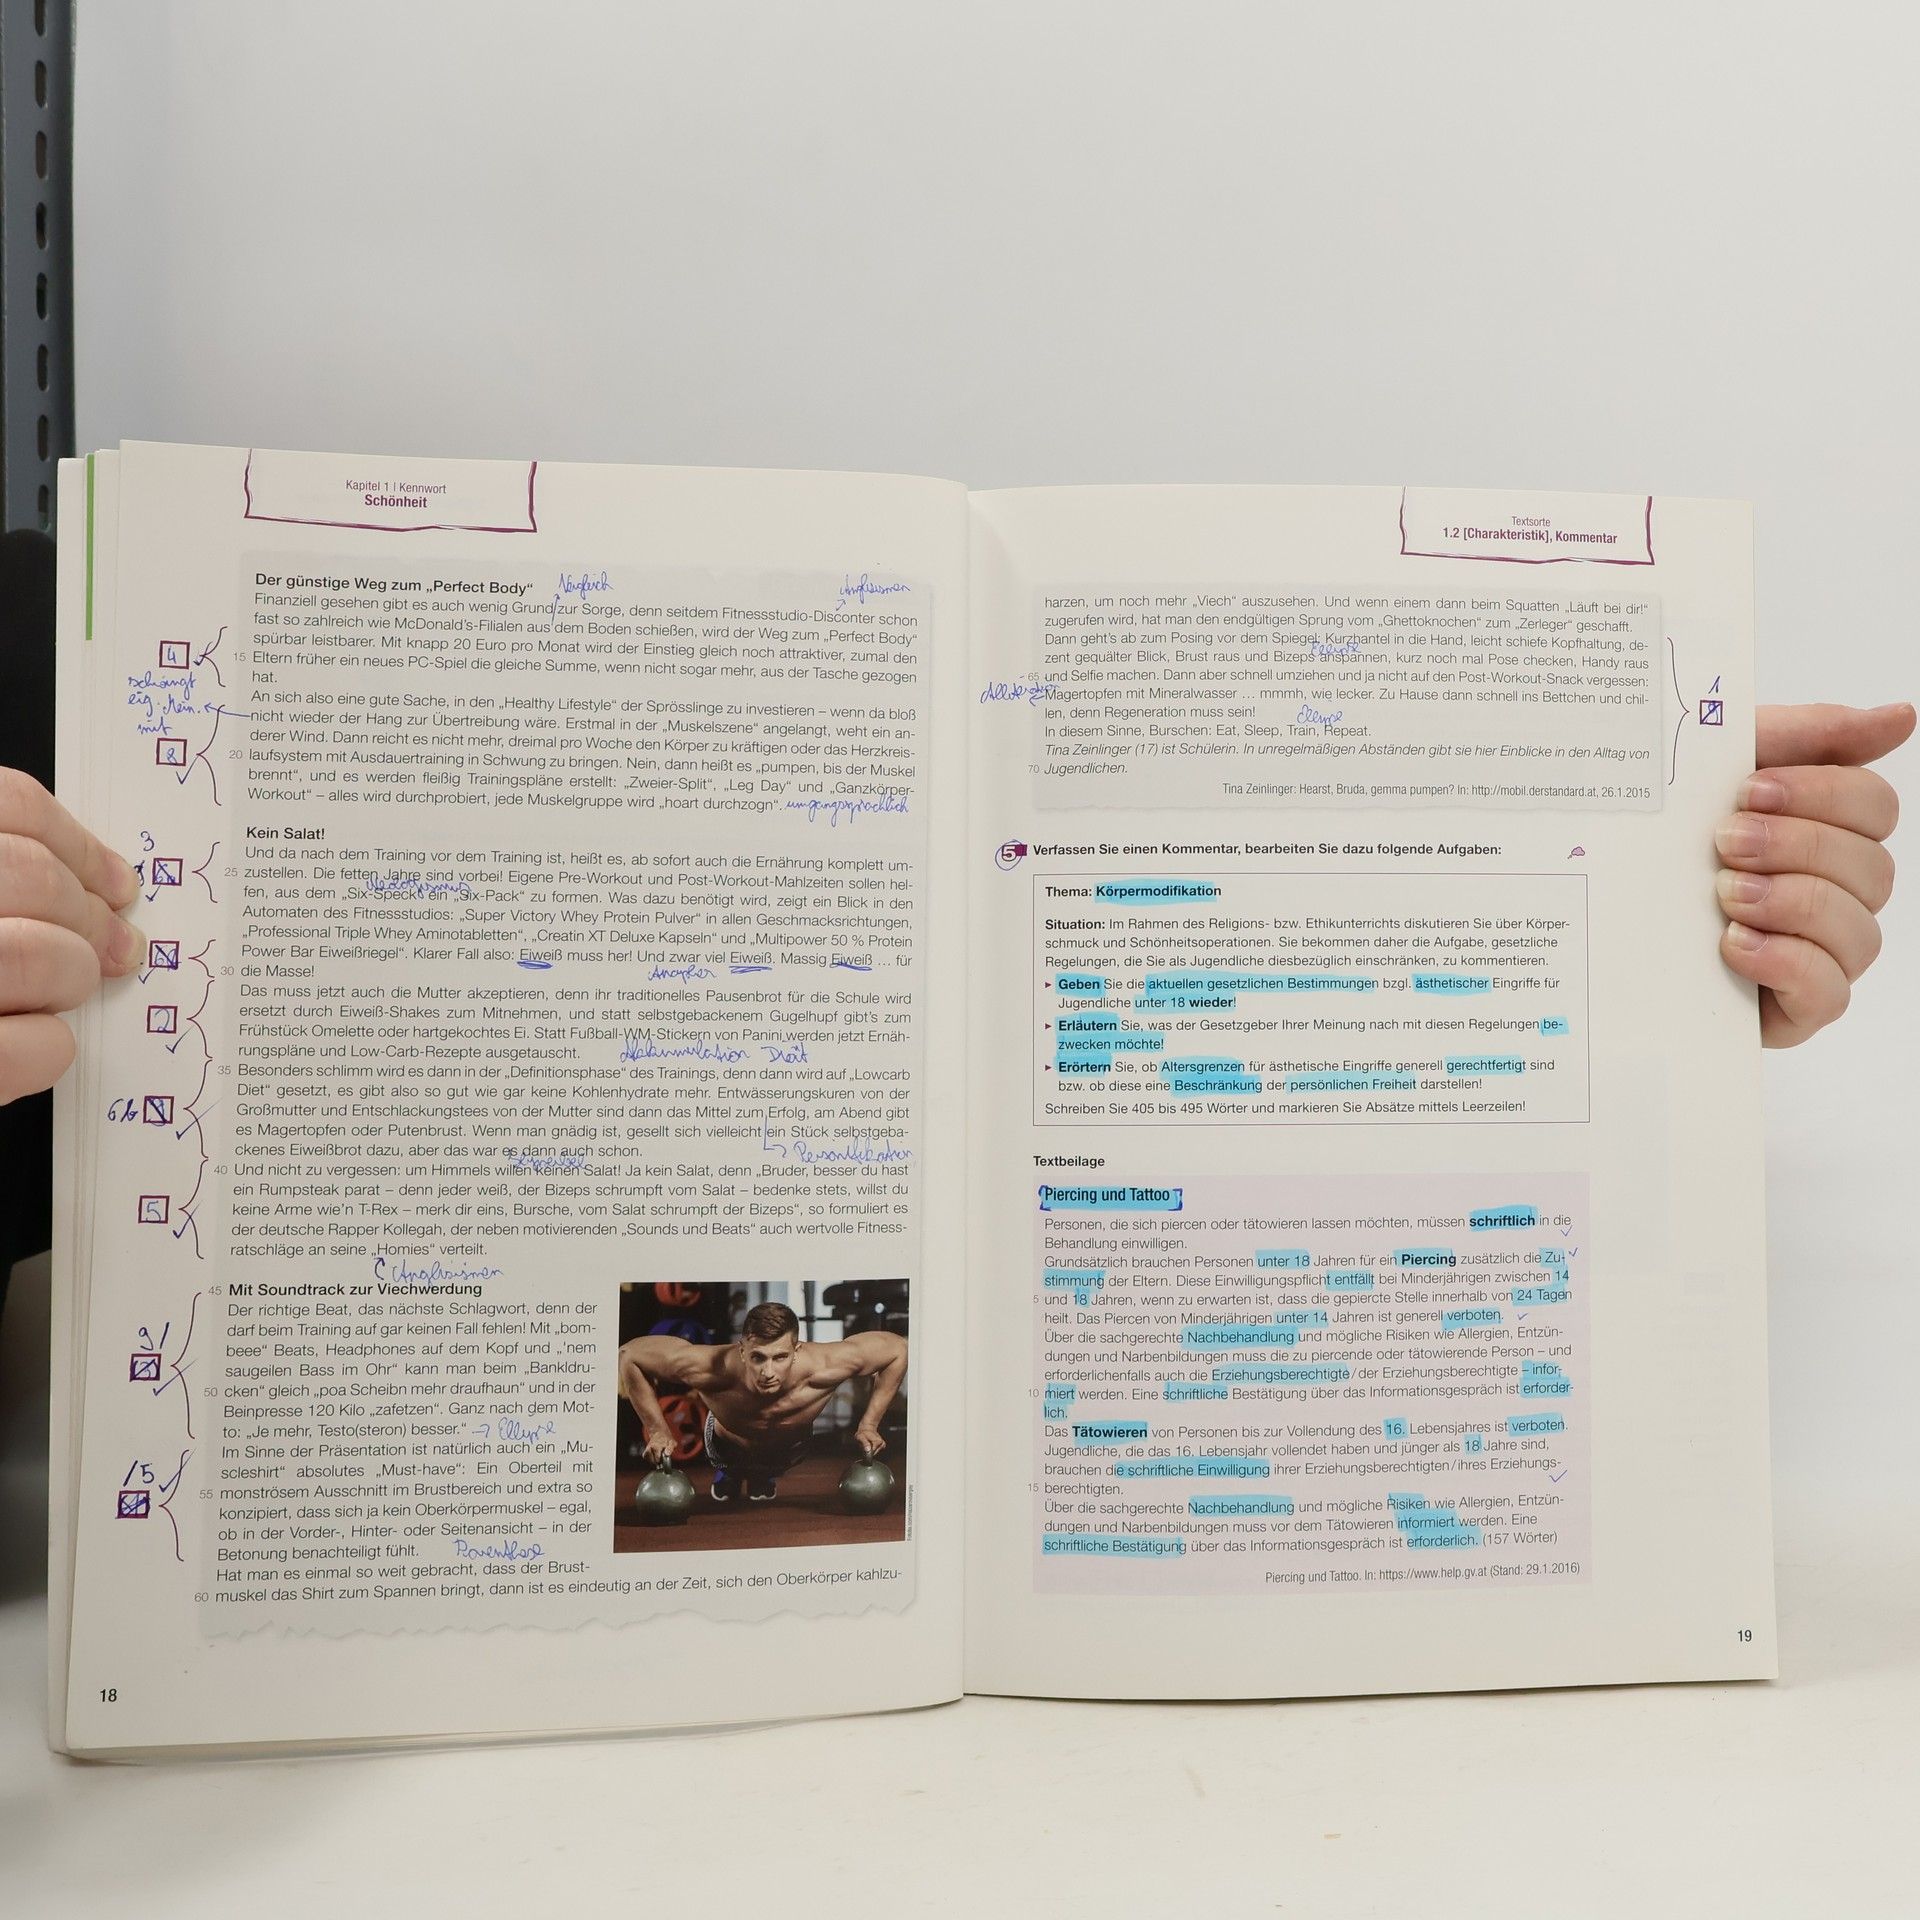 Kapitel 1 | Kennwort
Schönheit
Der günstige Weg zum „Perfect Body“
Vergleich
Anglizismen
Finanziell gesehen gibt es auch wenig Grund zur Sorge, denn seitdem Fitnessstudio-Disconter schon
fast so zahlreich wie McDonald's-Filialen aus dem Boden schießen, wird der Weg zum „Perfect Body“
spürbar leistbarer. Mit knapp 20 Euro pro Monat wird der Einstieg gleich noch attraktiver, zumal den
15 Eltern früher ein neues PC-Spiel die gleiche Summe, wenn nicht sogar mehr, aus der Tasche gezogen
hat.
4
schwingt
eig. Mein.
mit
An sich also eine gute Sache, in den „Healthy Lifestyle“ der Sprösslinge zu investieren – wenn da bloß
nicht wieder der Hang zur Übertreibung wäre. Erstmal in der „Muskelszene“ angelangt, weht ein an-
derer Wind. Dann reicht es nicht mehr, dreimal pro Woche den Körper zu kräftigen oder das Herzkreis-
20 laufsystem mit Ausdauertraining in Schwung zu bringen. Nein, dann heißt es „pumpen, bis der Muskel
brennt“, und es werden fleißig Trainingspläne erstellt: „Zweier-Split“, „Leg Day“ und „Ganzkörper-
Workout“ – alles wird durchprobiert, jede Muskelgruppe wird „hoart durchzogn“. umgangssprachlich
8
Kein Salat!
3
Und da nach dem Training vor dem Training ist, heißt es, ab sofort auch die Ernährung komplett um-
25 zustellen. Die fetten Jahre sind vorbei! Eigene Pre-Workout und Post-Workout-Mahlzeiten sollen hel-
Neologismus
fen, aus dem „Six-Speck“ ein „Six-Pack“ zu formen. Was dazu benötigt wird, zeigt ein Blick in den
Automaten des Fitnessstudios: „Super Victory Whey Protein Pulver“ in allen Geschmacksrichtungen,
„Professional Triple Whey Aminotabletten“, „Creatin XT Deluxe Kapseln“ und „Multipower 50 % Protein
Power Bar Eiweißriegel“. Klarer Fall also: Eiweiß muss her! Und zwar viel Eiweiß. Massig Eiweiß ... für
30 die Masse!
Anapher
Das muss jetzt auch die Mutter akzeptieren, denn ihr traditionelles Pausenbrot für die Schule wird
ersetzt durch Eiweiß-Shakes zum Mitnehmen, und statt selbstgebackenem Gugelhupf gibt's zum
2
Frühstück Omelette oder hartgekochtes Ei. Statt Fußball-WM-Stickern von Panini werden jetzt Ernäh-
rungspläne und Low-Carb-Rezepte ausgetauscht.
Akkumulation Diät
35 Besonders schlimm wird es dann in der „Definitionsphase“ des Trainings, denn dann wird auf „Lowcarb
Diet“ gesetzt, es gibt also so gut wie gar keine Kohlenhydrate mehr. Entwässerungskuren von der
Großmutter und Entschlackungstees von der Mutter sind dann das Mittel zum Erfolg, am Abend gibt
es Magertopfen oder Putenbrust. Wenn man gnädig ist, gesellt sich vielleicht ein Stück selbstgeba-
ckenes Eiweißbrot dazu, aber das war es dann auch schon.
Personifikation
40 Und nicht zu vergessen: um Himmels willen keinen Salat! Ja kein Salat, denn „Bruder, besser du hast
ein Rumpsteak parat – denn jeder weiß, der Bizeps schrumpft vom Salat – bedenke stets, willst du
5
keine Arme wie'n T-Rex – merk dir eins, Bursche, vom Salat schrumpft der Bizeps“, so formuliert es
der deutsche Rapper Kollegah, der neben motivierenden „Sounds und Beats“ auch wertvolle Fitness-
ratschläge an seine „Homies“ verteilt.
Anglizismen
45 Mit Soundtrack zur Viechwerdung
Der richtige Beat, das nächste Schlagwort, denn der
darf beim Training auf gar keinen Fall fehlen! Mit „bom-
beee“ Beats, Headphones auf dem Kopf und „'nem
saugeilen Bass im Ohr“ kann man beim „Bankldru-
50 cken“ gleich „poa Scheibn mehr draufhaun“ und in der
Beinpresse 120 Kilo „zafetzen“. Ganz nach dem Mot-
to: „Je mehr, Testo(steron) besser.“ → Ellipse
Im Sinne der Präsentation ist natürlich auch ein „Mu-
scleshirt“ absolutes „Must-have“: Ein Oberteil mit
55 monströsem Ausschnitt im Brustbereich und extra so
konzipiert, dass sich ja kein Oberkörpermuskel – egal,
ob in der Vorder-, Hinter- oder Seitenansicht – in der
Betonung benachteiligt fühlt. Parenthese
Hat man es einmal so weit gebracht, dass der Brust-
60 muskel das Shirt zum Spannen bringt, dann ist es eindeutig an der Zeit, sich den Oberkörper kahlzu-
18
Textsorte
1.2 [Charakteristik], Kommentar
harzen, um noch mehr „Viech“ auszusehen. Und wenn einem dann beim Squatten „Läuft bei dir!“
zugerufen wird, hat man den endgültigen Sprung vom „Ghettoknochen“ zum „Zerleger“ geschafft.
Dann geht's ab zum Posing vor dem Spiegel: Kurzhantel in die Hand, leicht schiefe Kopfhaltung, de-
Ellipse
zent gequälter Blick, Brust raus und Bizeps anspannen, kurz noch mal Pose checken, Handy raus
65 und Selfie machen. Dann aber schnell umziehen und ja nicht auf den Post-Workout-Snack vergessen:
Magertopfen mit Mineralwasser ... mmmh, wie lecker. Zu Hause dann schnell ins Bettchen und chil-
len, denn Regeneration muss sein!
Ellipse
In diesem Sinne, Burschen: Eat, Sleep, Train, Repeat.
Tina Zeinlinger (17) ist Schülerin. In unregelmäßigen Abständen gibt sie hier Einblicke in den Alltag von
70 Jugendlichen.
1
Tina Zeinlinger: Hearst, Bruda, gemma pumpen? In: http://mobil.derstandard.at, 26.1.2015
5 Verfassen Sie einen Kommentar, bearbeiten Sie dazu folgende Aufgaben:
Thema: Körpermodifikation
Situation: Im Rahmen des Religions- bzw. Ethikunterrichts diskutieren Sie über Körper-
schmuck und Schönheitsoperationen. Sie bekommen daher die Aufgabe, gesetzliche
Regelungen, die Sie als Jugendliche diesbezüglich einschränken, zu kommentieren.
▸ Geben Sie die aktuellen gesetzlichen Bestimmungen bzgl. ästhetischer Eingriffe für
Jugendliche unter 18 wieder!
▸ Erläutern Sie, was der Gesetzgeber Ihrer Meinung nach mit diesen Regelungen be-
zwecken möchte!
▸ Erörtern Sie, ob Altersgrenzen für ästhetische Eingriffe generell gerechtfertigt sind
bzw. ob diese eine Beschränkung der persönlichen Freiheit darstellen!
Schreiben Sie 405 bis 495 Wörter und markieren Sie Absätze mittels Leerzeilen!
Textbeilage
Piercing und Tattoo
Personen, die sich piercen oder tätowieren lassen möchten, müssen schriftlich in die
Behandlung einwilligen.
Grundsätzlich brauchen Personen unter 18 Jahren für ein Piercing zusätzlich die Zu-
stimmung der Eltern. Diese Einwilligungspflicht entfällt bei Minderjährigen zwischen 14
5 und 18 Jahren, wenn zu erwarten ist, dass die gepiercte Stelle innerhalb von 24 Tagen
heilt. Das Piercen von Minderjährigen unter 14 Jahren ist generell verboten.
Über die sachgerechte Nachbehandlung und mögliche Risiken wie Allergien, Entzün-
dungen und Narbenbildungen muss die zu piercende oder tätowierende Person – und
erforderlichenfalls auch die Erziehungsberechtigte/der Erziehungsberechtigte – infor-
10 miert werden. Eine schriftliche Bestätigung über das Informationsgespräch ist erforder-
lich.
Das Tätowieren von Personen bis zur Vollendung des 16. Lebensjahres ist verboten.
Jugendliche, die das 16. Lebensjahr vollendet haben und jünger als 18 Jahre sind,
brauchen die schriftliche Einwilligung ihrer Erziehungsberechtigten/ihres Erziehungs-
15 berechtigten.
Über die sachgerechte Nachbehandlung und mögliche Risiken wie Allergien, Entzün-
dungen und Narbenbildungen muss vor dem Tätowieren informiert werden. Eine
schriftliche Bestätigung über das Informationsgespräch ist erforderlich. (157 Wörter)
Piercing und Tattoo. In: https://www.help.gv.at (Stand: 29.1.2016)
19